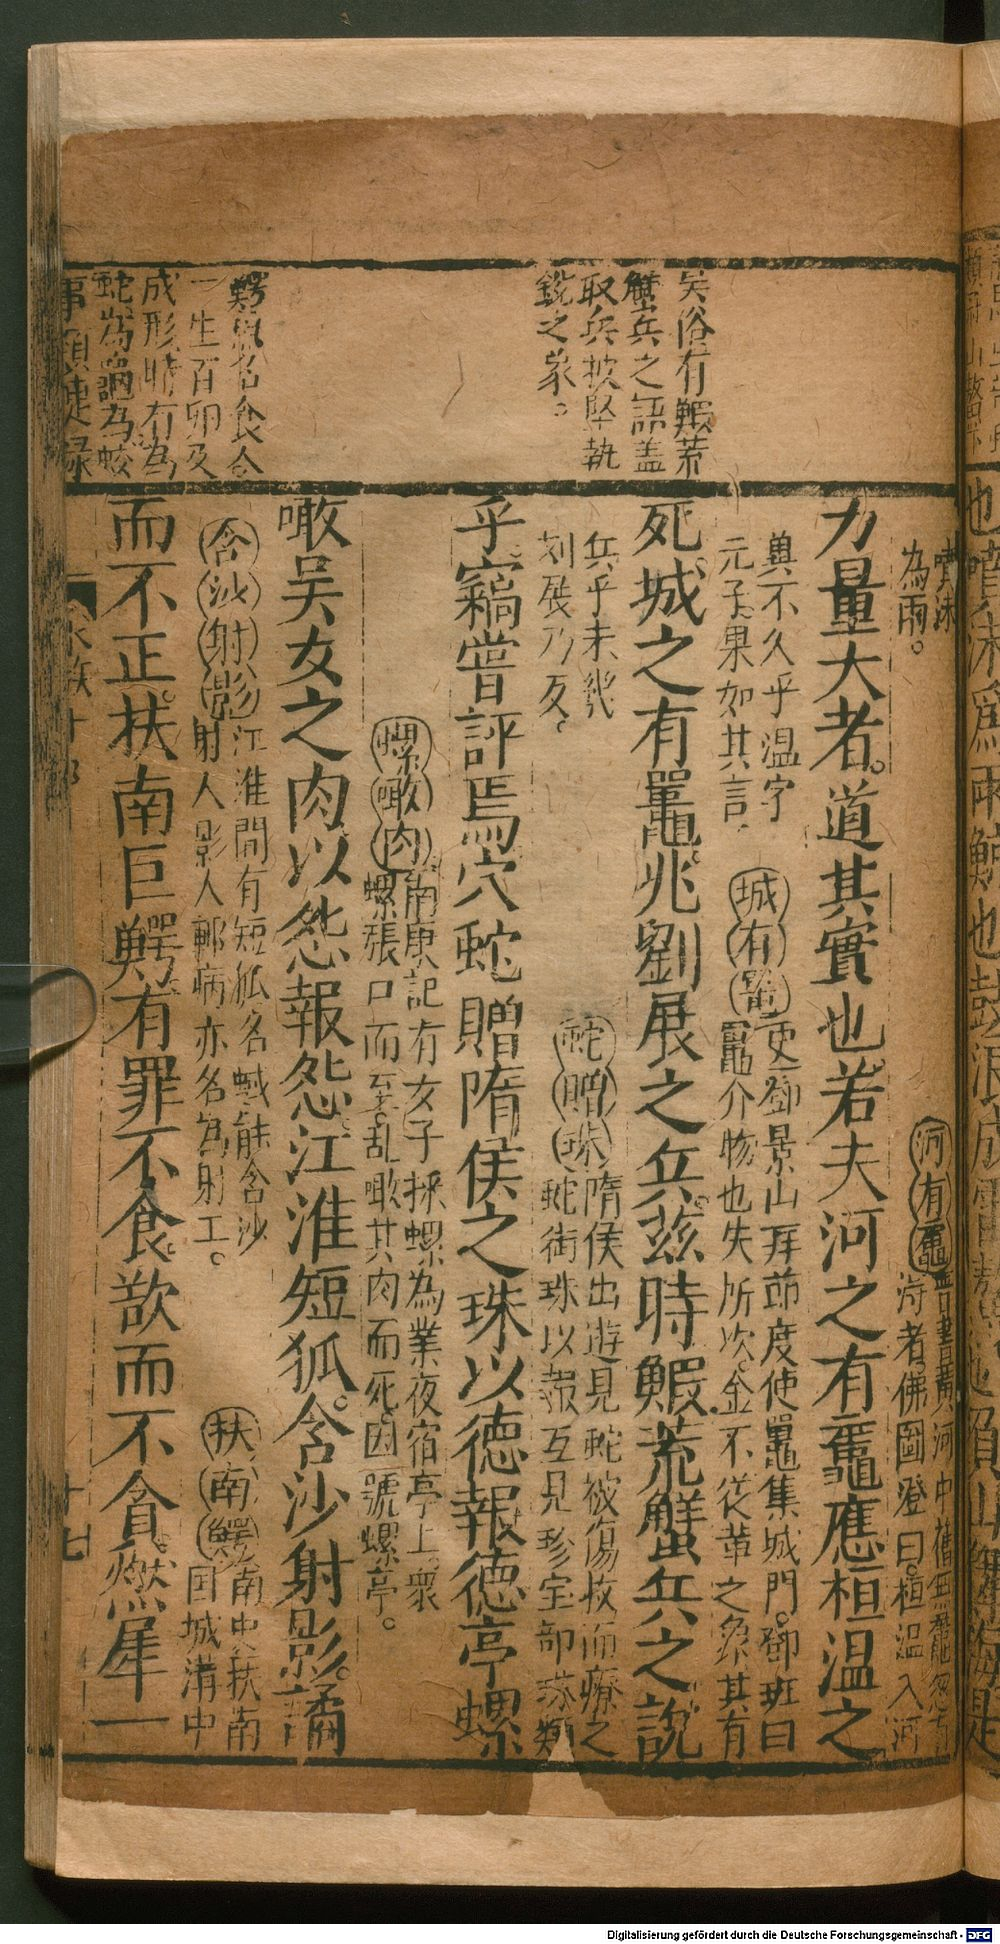 吳俗有鰕荒
蟹兵之語盖
取兵披堅執
銳之象。
鰐魚名食人
一生百卵及
成形時有為
蛇為龜為蛟
事類捷録
噴沫
為雨。
河有鼉晉書黄河中舊無鼉忽有
浔者佛圖澄曰桓温入河
力量大者。道其實也若夫河之有鼉應桓温之
其不久乎温字
元子果如其言
城有鼉史鄧景山拜節度使鼉集城門。鄧班曰
鼉介物也失所次。金不從革之象其有
死城之有鼉兆劉展之兵茲時鰕荒蟹兵之說
兵乎未幾
刘展乃反。
蛇贈珠隋侯出遊見蛇被傷救而療之
蛇銜珠以報互見珍宝部珠類
乎竊嘗評焉穴蛇贈隋侯之珠以德報德亭螺
螺噉肉南康記有女子採螺為業夜宿亭上衆
螺張口而至乱噉其肉而死因號螺亭。
噉吴女之肉以怨報怨江淮短狐。含沙射影。譎
含沙射影江淮間有短狐名蜮能含沙
射人影人郫病亦名為射工。
扶南鰐南史扶南
国城溝中
而不正。扶南巨鰐有罪不食。歆而不貪燃犀一
十七
Digitalisierung gefördert durch die Deutsche Forschungsgemeinschaft - DFG